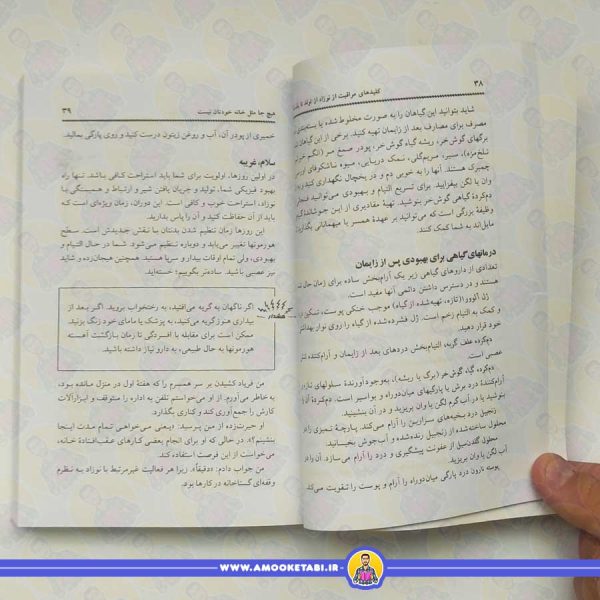 ۳۸
کلیدهای مراقبت از نوزاد از تولد تا
شاید بتوانید این گیاهان را به صورت مخلوط‌شده یا بسته‌بندی
مصرف برای مصارف بعد از زایمان تهیه کنید. برخی از این گیاهان
برگهای گوش‌خر، ریشه گیاه گوش‌خر، پودر صمغ مر
تلخ‌مزه)، سیر، مریم‌گلی، نمک دریایی، میوه ناشکوفای
چمبرک هستند. آنها را به خوبی دم و در یخچال نگهداری کنید و
وان یا لگن بیفزایید. برای تسریع التیام و بهبودی می‌توانید
دم‌کردهٔ گیاه گوش‌خر بنوشید. تهیه مقادیری از این جوشانده‌های
وظیفهٔ بزرگی است که می‌توانید بر عهدهٔ همسر یا میهمانانی بگذارید
مایل‌اند به شما کمک کنند.
درمانهای گیاهی برای بهبودی پس از زایمان
تعدادی از داروهای گیاهی زیر یک آرام‌بخش ساده برای زمان حال
هستند و در دسترس داشتن دائمی آنها مفید است.
ژل آلوورا (تازه، تهیه‌شده از گیاه) موجب خنکی پوست، تسکین
و کمک به التیام زخم است. ژل فشرده‌شده از گیاه را روی نوار بهداشتی
خود قرار دهید.
دم‌کرده علف گربه، التیام‌بخش دردهای بعد از زایمان و آرام‌کننده
عصبی است.
دم‌کرده گیاه، گوش‌خر (برگ یا ریشه)، به‌وجودآورندهٔ سلولهای تازه
آرام‌کنندهٔ درد برش یا پارگیهای میان‌دوراه و بواسیر است. دم‌کردهٔ آن را
بنوشید یا در آب گرم لگن یا وان بریزید و در آن بنشینید.
زنجبیل درد بخیه‌های سزارین را آرام می‌کند. پارچهٔ تمیزی را در
محلول ساخته‌شده از زنجبیل رنده‌شده و آب‌جوش بخیسانید.
محلول گلدن‌سیل از عفونت پیشگیری و درد را آرام می‌سازد. آن را در
آب لگن یا وان بریزید.
پوسته نارون درد پارگی میان‌دوراه را آرام و پوست را تقویت می‌کند.
۳۹
هیچ جا مثل خانه خودتان نیست
خمیری از پودر آن، آب و روغن زیتون درست کنید و روی پارگی بمالید.
سلام، غریبه
در اولین روزها، اولویت برای شما باید استراحت کافی باشد. تنها راه
بهبود فیزیکی شما، تولید و جریان یافتن شیر و ارتباط و همبستگی با
نوزاد، استراحت خوب و کافی است. این دوران، زمان ویژه‌ای است که
باید از آن حفاظت کنید و آن را پاس بدارید.
این روزها زمان تنظیم شدن بدنتان با نقشی جدید است. سطح
هورمونها تغییر می‌یابد و دوباره تنظیم می‌شود. شما در حال التیام و
بهبودی، ولی تمام اوقات بیدار و سرپا هستید. همچنین هیجان‌زده و شاید
نیز عصبی باشید. ساده‌تر بگوییم؛ خسته‌اید.
هشدار
اگر ناگهان به گریه می‌افتید، به رختخواب بروید. اگر بعد از
بیداری هنوز گریه می‌کنید، به پزشک یا مامای خود زنگ بزنید.
ممکن است برای مقابله با افسردگی تا زمان بازگشت آهسته
هورمونها به حال طبیعی، به دارو نیاز داشته باشید.
من فریاد کشیدن بر سر همسرم را که هفتهٔ اول در منزل مانده بود،
به خاطر می‌آورم. از او می‌خواستم تلفن به اداره را متوقف و ابزارآلات
کارش را جمع‌آوری کند و کناری بگذارد.
او حیرت‌زده از من پرسید: «یعنی می‌خواهی تمام مدت اینجا
بنشینم؟». در حالی که او برای انجام بعضی کارهای عقب‌افتادهٔ خانه،
می‌خواست از این فرصت استفاده کند.
من جواب دادم: «دقیقاً». زیرا هر فعالیت غیرمرتبط با نوزاد به نظرم
وقفه‌ای گستاخانه در کارها بود.
WWW.AMOOKETABI.IR